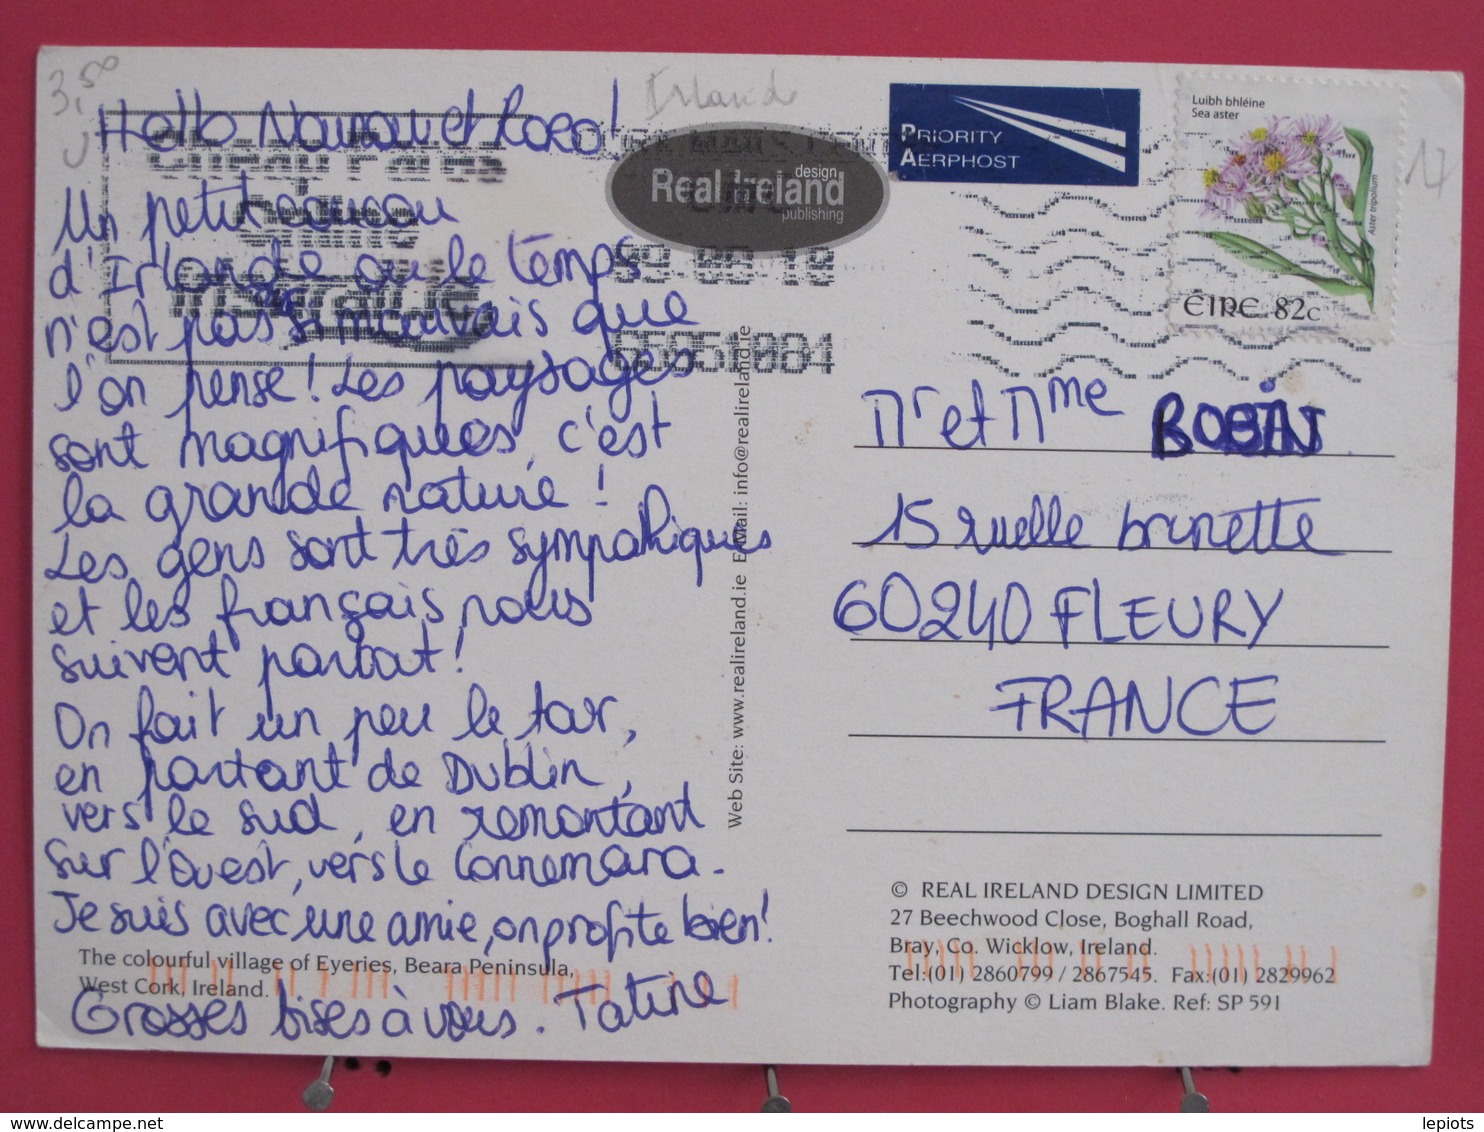 3,50
Irlande
17
Hello Nounou et Roro!
Un petit coucou
d'Irlande ou le temps
n'est pas si mauvais que
l'on pense! Les paysages
sont magnifiques, c'est
la grande nature!
Les gens sont très sympathiques
et les français nous
suivent partout!
On fait un peu le tour,
en partant de Dublin,
vers le sud, en remontant
sur l'ouest, vers le Connemara.
Je suis avec une amie, on profite bien!
Grosses bises à vous. Tatine
The colourful village of Eyeries, Beara Peninsula,
West Cork, Ireland.
Real Ireland
design
publishing
PRIORITY
AERPHOST
Luibh bhléine
Sea aster
Aster tripolium
ÉIRE 82c
Web Site: www.realireland.ie E.Mail: info@realireland.ie
Mr et Mme BOBIN
15 ruelle brunette
60240 FLEURY
FRANCE
© REAL IRELAND DESIGN LIMITED
27 Beechwood Close, Boghall Road,
Bray, Co. Wicklow, Ireland.
Tel:(01) 2860799 / 2867545. Fax:(01) 2829962
Photography © Liam Blake. Ref: SP 591
delcampe.net
lepiots